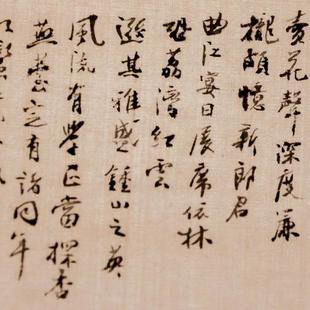 賣花聲深度簾
櫳頗憶新郎君
曲江宴日廣席依林
荔灣紅雲
遜其雅盛鍾山之英
風流有學正當探杏
燕臺定有諸同年